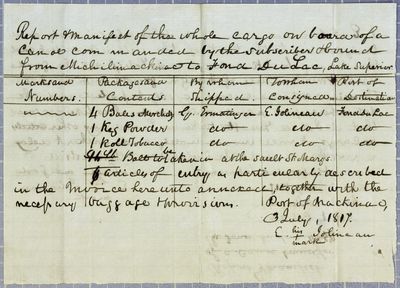 Report & Manifest of the whole cargo on board of a
Canoe commanded by the Subscriber & bound
from Michilimackinac to Fond Du Lac, Lake Superior.
Marks and Packages and By whom To whom Port of
Numbers. Contents Shipped. Consigned Destination
4 Bales Merchdz G. Ermatinger E. Jolineau Fond du Lac
1 Keg Powder do do do
1 Roll Tobacco do do do
Salt to be taken in at the Sault St Marys.
6 articles of entry as particularly described
in the Invoice hereunto annexed, together with the
necessary baggage & provisions. Port of Mackinac,
3 July, 1817.
E. his Jolineau
mark